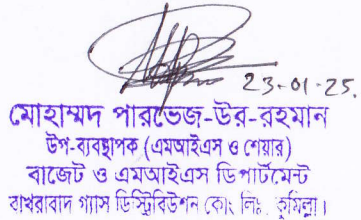 23-01-25.
মোহাম্মদ পারভেজ-উর-রহমান
উপ-ব্যবস্থাপক (এমআইএস ও শেয়ার)
বাজেট ও এমআইএস ডিপার্টমেন্ট
বাখরাবাদ গ্যাস ডিস্ট্রিবিউশন কোং লিঃ, কুমিল্লা।